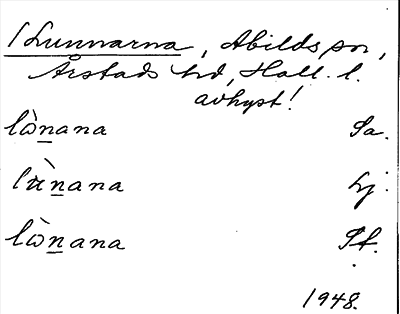 Lunnarna, Abilds sn,
Årstads hd, Hall. l.
avhyst!
lὼnana Sa.
lὰnana Lj.
lὼnana St.
1948.